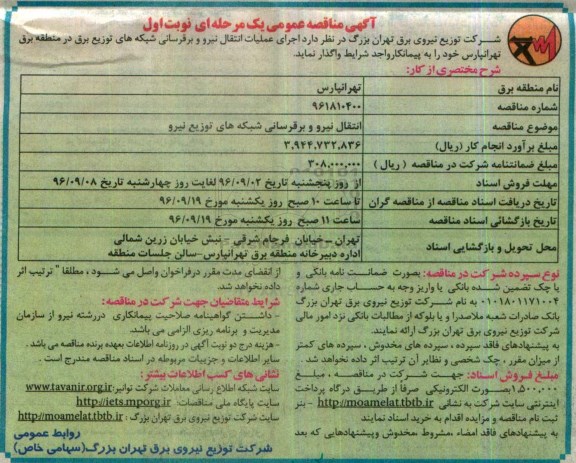 آگهی مناقصه عمومی یک مرحله ای نوبت اول
شرکت توزیع نیروی برق تهران بزرگ در نظر دارد اجرای عملیات انتقال نیرو و برقرسانی شبکه های توزیع برق در منطقه برق
تهرانپارس خود را به پیمانکار واجد شرایط واگذار نماید.
شرح مختصری از کار:
نام منطقه برق تهرانپارس
شماره مناقصه ۹۶۱۸۱۰۴۰۰
موضوع مناقصه انتقال نیرو و برقرسانی شبکه های توزیع نیرو
مبلغ برآورد انجام کار (ریال) ۳,۹۴۴,۷۳۲,۸۳۶
مبلغ ضمانتنامه شرکت در مناقصه (ریال) ۳۰۸,۰۰۰,۰۰۰
مهلت فروش اسناد از روز پنجشنبه تاریخ ۹۶/۰۹/۰۲ لغایت روز چهارشنبه تاریخ ۹۶/۰۹/۰۸
تاریخ دریافت اسناد مناقصه از مناقصه گران تا ساعت ۱۰ صبح روز یکشنبه مورخ ۹۶/۰۹/۱۹
تاریخ بازگشائی اسناد مناقصه ساعت ۱۱ صبح روز یکشنبه مورخ ۹۶/۰۹/۱۹
محل تحویل و بازگشایی اسناد تهران – خیابان فرجام شرقی – نبش خیابان زرین شمالی
اداره دبیرخانه منطقه برق تهرانپارس – سالن جلسات منطقه
نوع سپرده شرکت در مناقصه: بصورت ضمانت نامه بانکی و
یا چک تضمین شده بانکی یا واریز وجه به حساب جاری شماره
۰۱۰۱۸۰۱۱۷۱۰۰۴ به نام شرکت توزیع نیروی برق تهران بزرگ
بانک صادرات شعبه ملاصدرا و یا بلوکه از مطالبات بانکی نزد امور مالی
شرکت توزیع نیروی برق تهران بزرگ ارائه نمایند.
به پیشنهادهای فاقد سپرده، سپرده های مخدوش، سپرده های کمتر
از میزان مقرر، چک شخصی و نظایر آن ترتیب اثر داده نخواهد شد.
مبلغ فروش اسناد: جهت شرکت در مناقصه، مبلغ
۱,۵۰۰,۰۰۰ بصورت الکترونیکی صرفاً از طریق درگاه پرداخت
اینترنتی سایت شرکت به نشانی http://moamelat.tbtb.ir – بنر
ثبت نام مناقصه و مزایده اقدام به خرید اسناد نمایند
به پیشنهادهای فاقد امضاء، مشروط، مخدوش و پیشنهادهایی که بعد
از انقضای مدت مقرر در فراخوان واصل می شود، مطلقا" ترتیب اثر
داده نخواهد شد.
شرایط متقاضیان جهت شرکت در مناقصه:
- داشتن گواهینامه صلاحیت پیمانکاری در رشته نیرو از سازمان
مدیریت و برنامه ریزی الزامی می باشد.
- هزینه درج دو نوبت آگهی در روزنامه اطلاعات بعهده برنده مناقصه می باشد.
سایر اطلاعات و جزییات مربوطه در اسناد مناقصه مندرج است.
نشانی های کسب اطلاعات بیشتر:
سایت شبکه اطلاع رسانی معاملات شرکت توانیر: www.tavanir.org.ir
سایت پایگاه ملی مناقصات http://iets.mporg.ir
سایت شرکت توزیع نیروی برق تهران بزرگ: http//moamelat.tbtb.ir
روابط عمومی
شرکت توزیع نیروی برق تهران بزرگ (سهامی خاص)